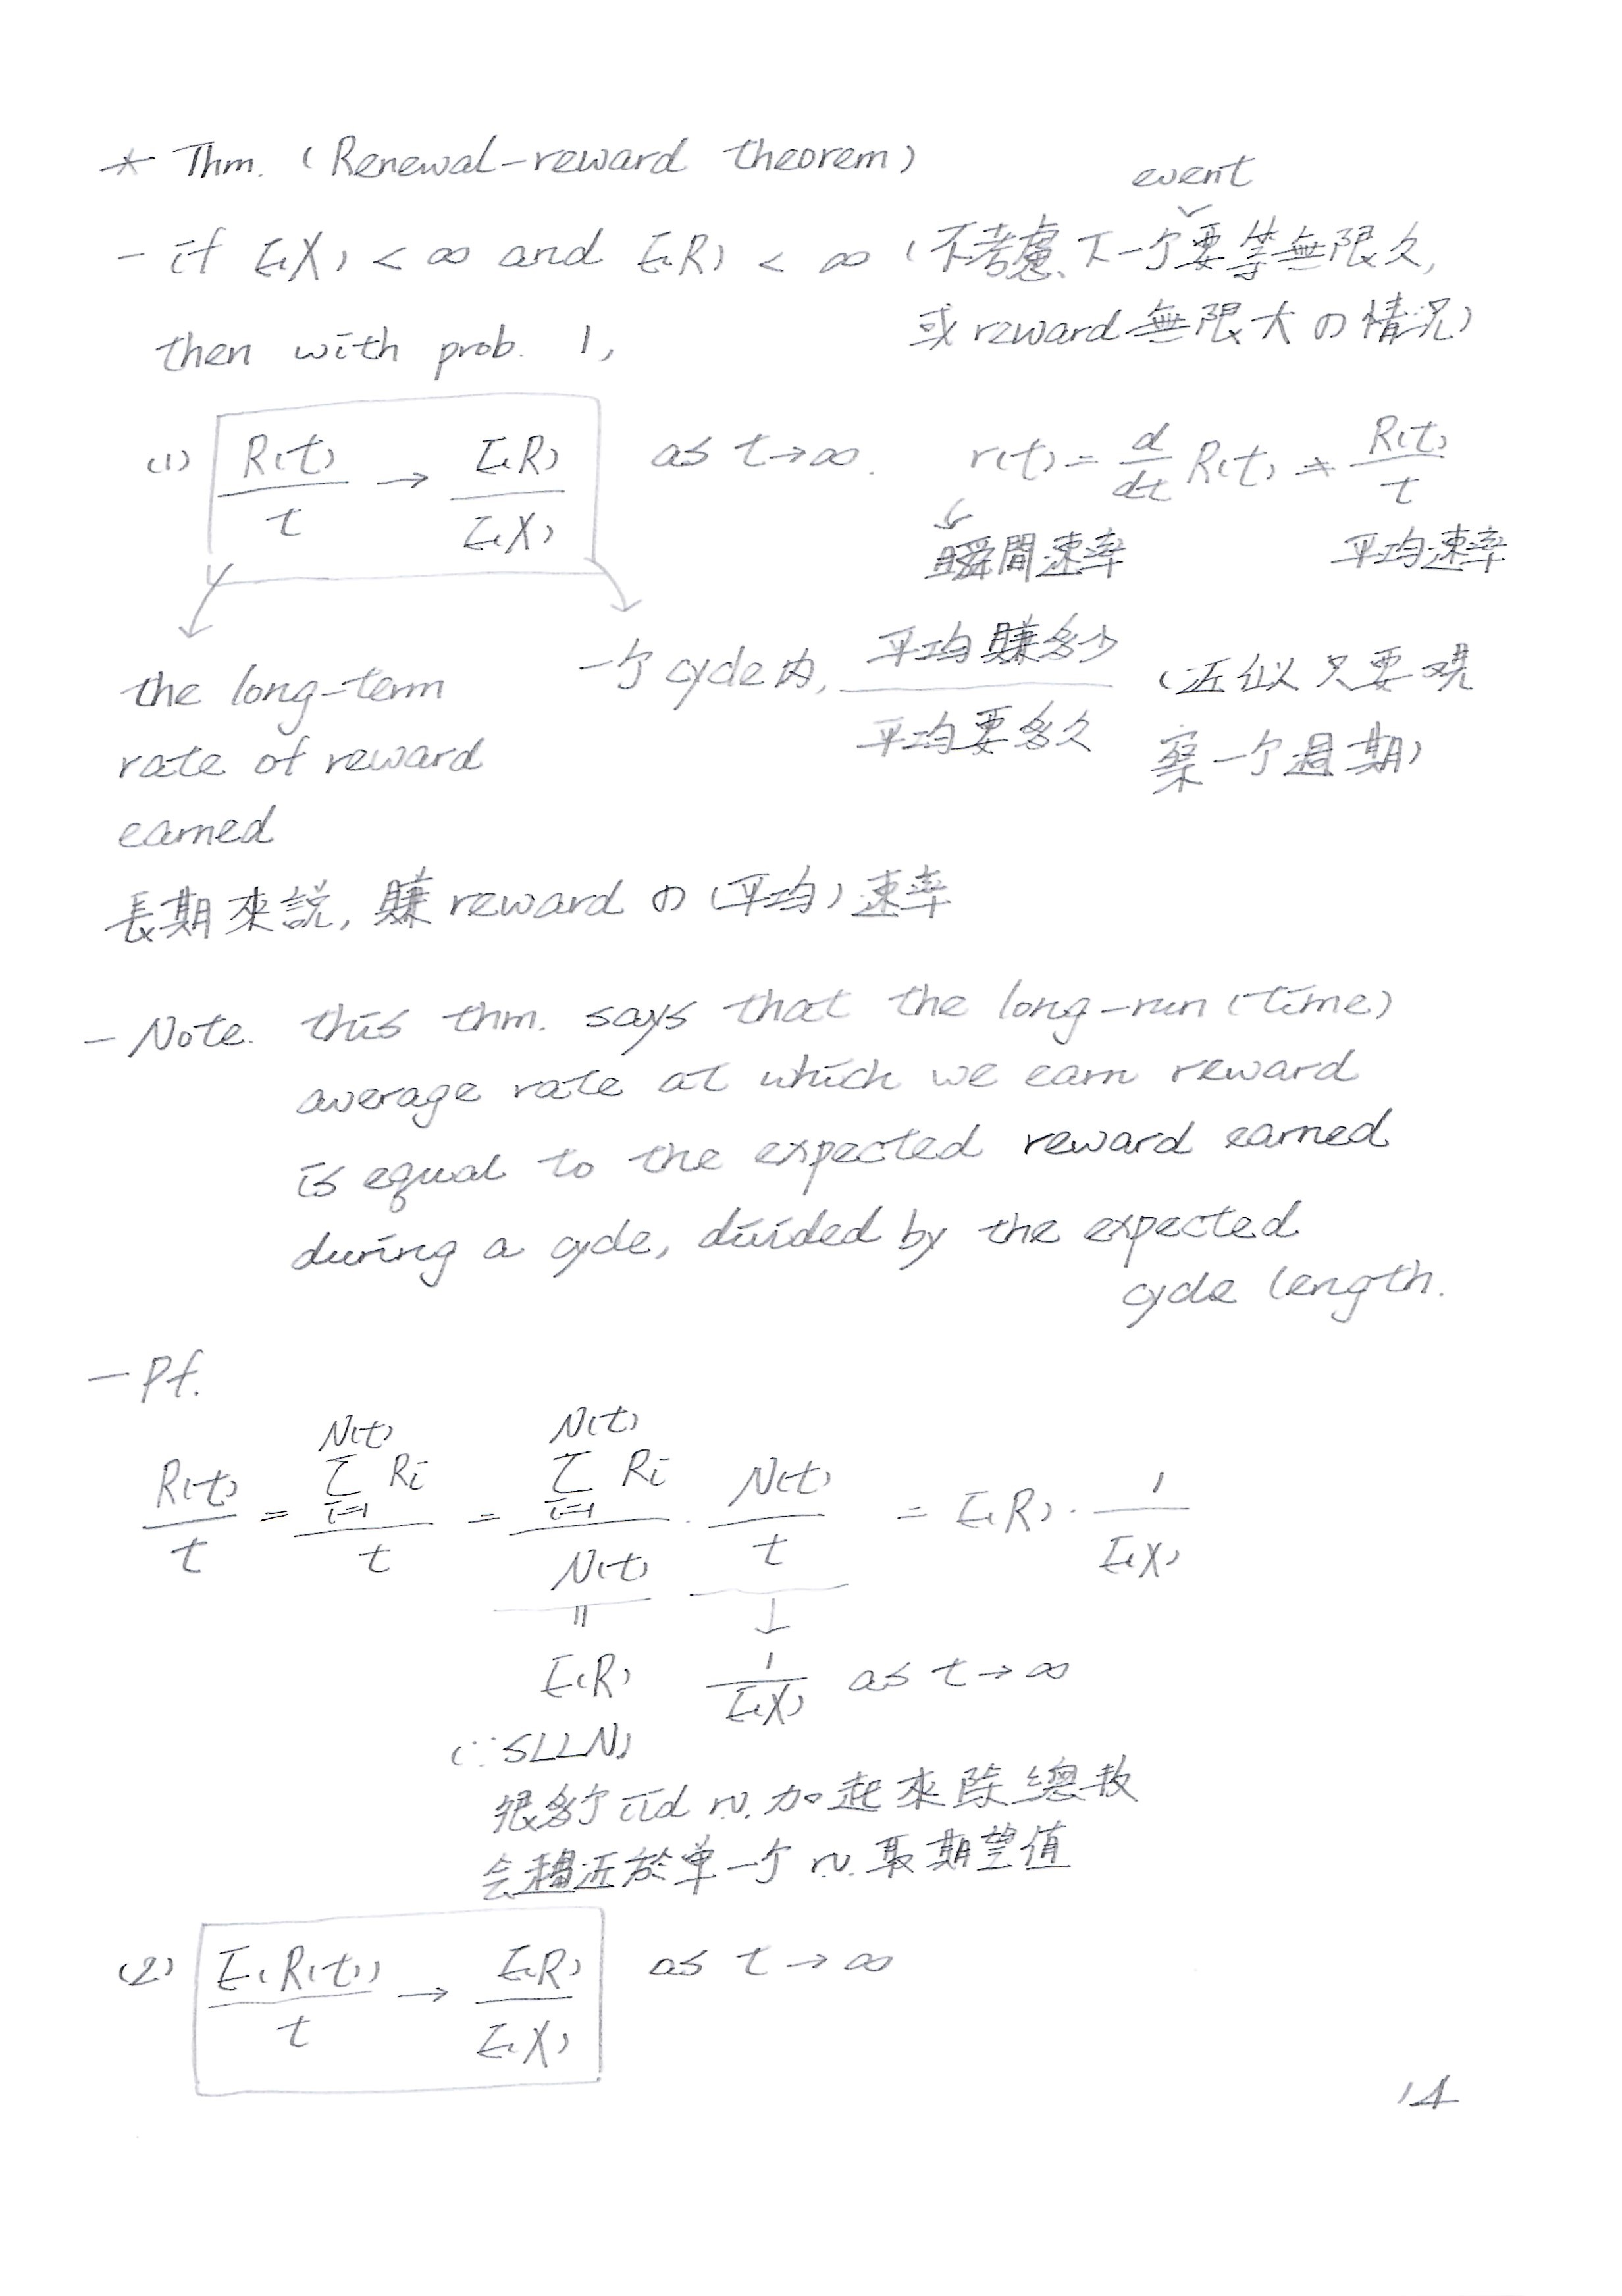 * Thm. (Renewal-reward theorem)
event
- if E(X) < ∞ and E(R) < ∞ (不考慮下一个要等無限久,
或 reward 無限大の情況)
then with prob. 1,
(1) R(t)/t → E(R)/E(X) as t→∞. r(t) = d/dt R(t) ≠ R(t)/t
瞬間速率 平均速率
the long-term
rate of reward
earned
一个 cycle 内, 平均賺多少/平均要多久 (近似只要观
察一个週期)
長期來説, 賺 reward の (平均) 速率
- Note. this thm. says that the long-run (time)
average rate at which we earn reward
is equal to the expected reward earned
during a cycle, divided by the expected
cycle length.
- Pf.
R(t)/t = Σ_{i=1}^{N(t)} Ri / t = Σ_{i=1}^{N(t)} Ri / N(t) · N(t)/t = E(R) · 1/E(X)
|| ↓
E(R) 1/E(X) as t→∞
(∵SLLN)
很多个 iid rv. 加起來除總数
会趨近於单一个 rv. 取期望值
(2) E(R(t))/t → E(R)/E(X) as t→∞
14